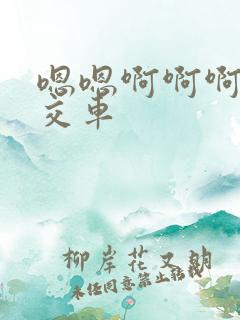 嗯嗯啊啊啊
交车
柳岸花又明
未经同意禁止转载